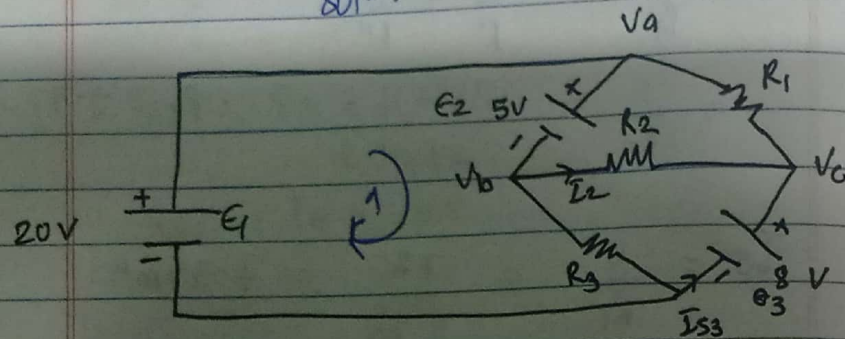 Va
R1
E2 5V
R2
Vb
I2
Vc
+
E1
20V
1
-
R3
8 V
e3
IS3